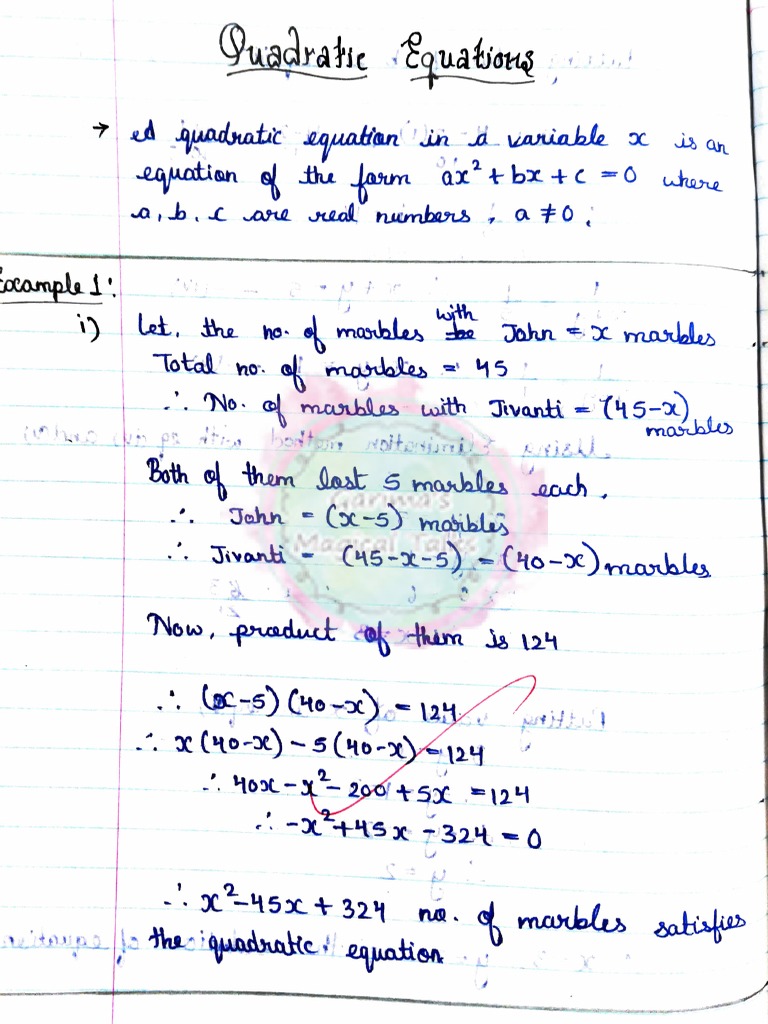 Quadratic Equations
→ A quadratic equation in a variable x is an
equation of the form ax² + bx + c = 0 where
a, b, c are real numbers, a ≠ 0.
Example 1:
i) Let, the no. of marbles with John = x marbles
Total no. of marbles = 45
∴ No. of marbles with Jivanti = (45-x)
marbles
Both of them lost 5 marbles each.
∴ John = (x-5) marbles
∴ Jivanti = (45-x-5) = (40-x) marbles
Garima's
Magical Talks
Now, product of them is 124
∴ (x-5) (40-x) = 124
∴ x(40-x) - 5(40-x) = 124
∴ 40x - x² - 200 + 5x = 124
∴ -x² + 45x - 324 = 0
∴ x² - 45x + 324 no. of marbles satisfies
the quadratic equation